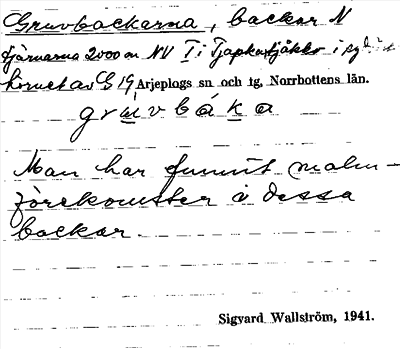 Gruvbackarna, backar N
tjärnarna 2000 m NV I i Tjapkatjåkko i
hörnet av G 19 Arjeplogs sn och tg, Norrbottens län.
grúvbáka
Man har funnit malm-
förekomster i dessa
backar.
Sigvard Wallström, 1941.